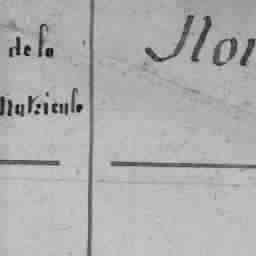 de la
Matricule
Nom